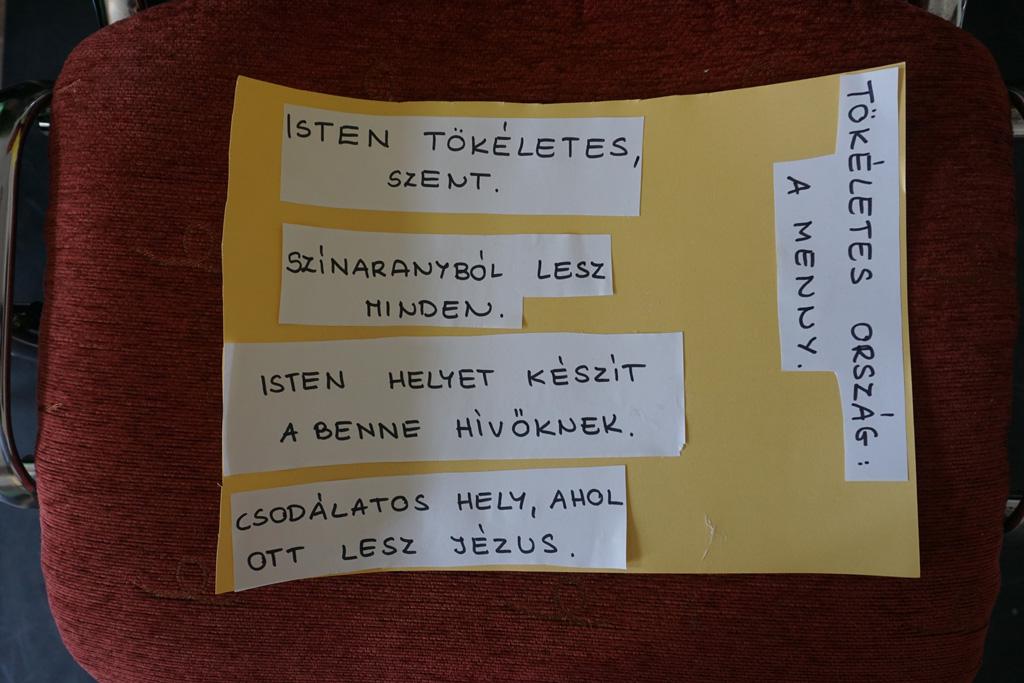 TÖKÉLETES ORSZÁG:
A MENNY.
ISTEN TÖKÉLETES,
SZENT.
SZÍNARANYBÓL LESZ
MINDEN.
ISTEN HELYET KÉSZÍT
A BENNE HÍVŐKNEK.
CSODÁLATOS HELY, AHOL
OTT LESZ JÉZUS.